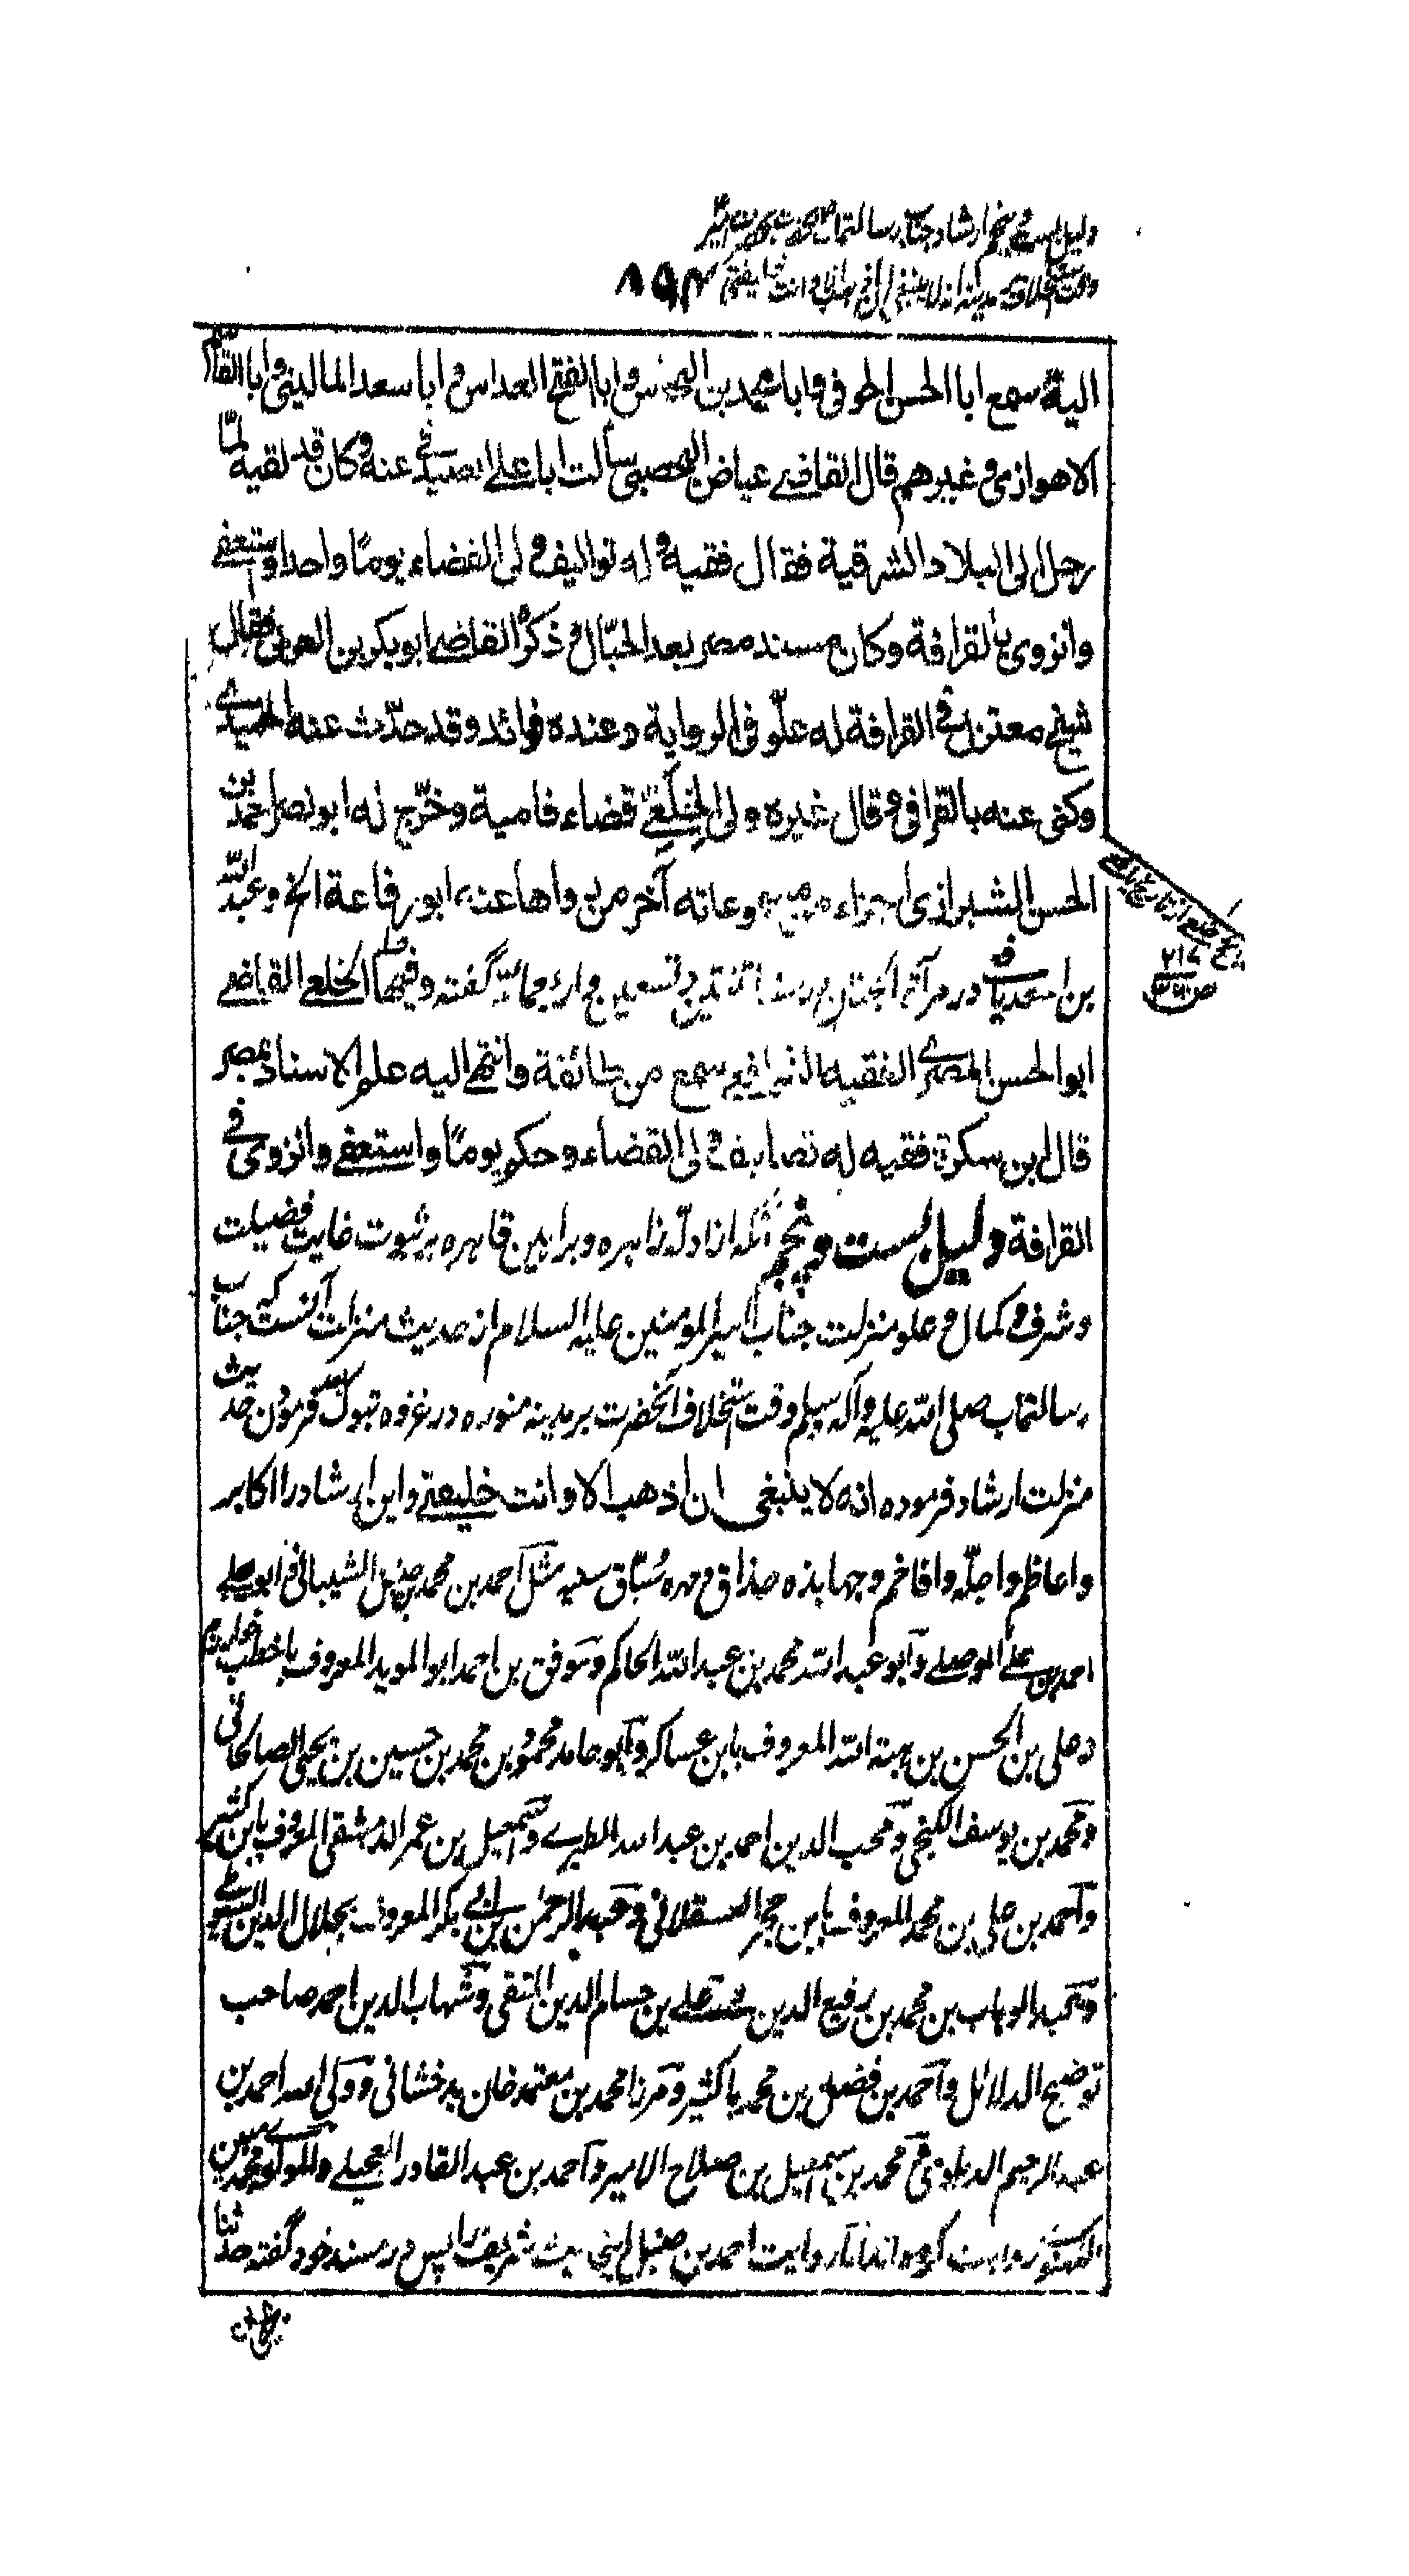 دلیل بست و پنجم ارشاد جناب رسالتمآب
وقت استخلاف مدینه انه لا ینبغی ان اذهب الا و انت خلیفتی ۸۹۴
الیه سمع ابا الحسن الحوفی و ابا محمد بن النحاس و ابا الفتح العداس و ابا سعد المالینی و ابا القاسم
الاهوازی و غیرهم قال القاضی عیاض الیحصبی سألت ابا علی الصدفی عنه و کان قد لقیه لما
رحل الی البلاد الشرقیة فقال فقیه و له توالیف و لی القضاء یومًا واحدا و استعفی
و انزوی بالقرافة و کان مسند مصر بعد الحبّال و ذکره القاضی ابو بکر بن العربی فقال
شیخ معتزل فی القرافة له علوّ فی الروایة و عنده فوائد و قد حدّث عنه الحمیدی
و کنی عنه بالقرافی و قال غیره ولی الخلعی قضاء فامیة و خرّج له ابو نصر احمد بن
الحسن الشیرازی اجزاء من مسموعاته آخر من رواها عنه ابو رفاعة الخ و عبد الله
بن اسعد یافعی در مرآة الجنان در سنة اثنتین و تسعین و اربعمائة گفته و فیها الخلعی القاضی
ابو الحسن المصری الفقیه الشافعی سمع من طائفة و انتهی الیه علو الاسناد بمصر
قال ابن سکرة فقیه له تصانیف ولی القضاء و حکم یومًا و استعفی و انزوی فی
القرافة دلیل بست و پنجم آنکه از ادلّه زاهره و براهین قاهره بر ثبوت غایت فضیلت
و شرف و کمال و علو منزلت جناب امیر المومنین علیه السلام از حدیث منزلت آنست که جناب
رسالتمآب صلی الله علیه و آله و سلم وقت استخلاف آنحضرت بر مدینه منوره در غزوه تبوک بعد فرمودن حدیث
منزلت ارشاد فرموده انه لا ینبغی ان اذهب الا و انت خلیفتی و این ارشاد را اکابر
و اعاظم و اجلّه و افاخم و جهابذه حذاق و مهره سُبّاق سنیه مثل احمد بن محمد بن حنبل الشیبانی و ابو یعلی
احمد بن علی الموصلی و ابو عبد الله محمد بن عبد الله الحاکم و موفق بن احمد ابو الموید المعروف باخطب خوارزم
و علی بن الحسن بن هبة الله المعروف بابن عساکر و ابو حامد محمود بن محمد بن حسین بن یحیی الصالحانی
و محمد بن یوسف الکنجی و محب الدین احمد بن عبد الله الطبری و اسمعیل بن عمر الدمشقی المعروف بابن کثیر
و احمد بن علی بن محمد المعروف بابن حجر العسقلانی و عبد الرحمن بن ابی بکر المعروف بجلال الدین السیوطی
و عبد الوهاب بن محمد بن رفیع الدین و علی بن حسام الدین المتقی و شهاب الدین احمد صاحب
توضیح الدلائل و احمد بن فضل بن محمد باکثیر و مرزا محمد بن معتمد خان بدخشانی و ولی الله احمد بن
عبد الرحیم الدهلوی و محمد بن اسمعیل بن صلاح الامیر و احمد بن عبد القادر العجیلی و المولوی محمد مبین
لکهنوی روایت کرده اند اما روایت احمد بن حنبل این حدیث شریف را پس در مسند خود گفته حدثنا